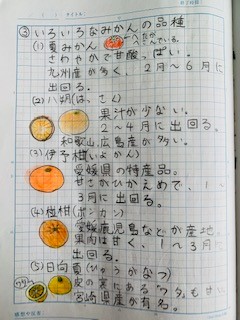 ③いろいろなみかんの品種
(1)夏みかん
へたがかたい
さわやかで甘酸っぱい。
九州産が多く、2月～6月に
出回る。
(2)八朔(はっさく)
果汁が少ない。
2～4月に出回る。
和歌山、広島産が多い。
(3)伊予柑(いよかん)
愛媛県の特産品。
甘さがひかえめで、1～
3月に出回る。
(4)椪柑(ポンカン)
愛媛鹿児島などが産地。
果肉は甘く、1～3月に
出回る。
(5)日向夏(ひゅうがなつ)
皮の実にある"ワタ"も甘い
宮崎県産が有名。
ワタ